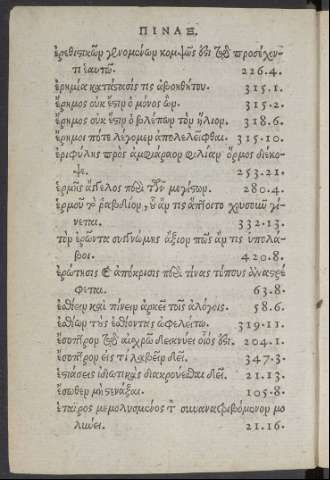 ΠΙΝΑΞ.
ἐρεθιστικῶν γενομένων κομψῶς ὅτι προσέχον-
τι ἑαυτῷ. 226.4.
ἐρημία κατάστασίς τις ἀβοηθήτου. 315.1.
ἔρημος οὐκ ἔστιν ὁ μόνος ὤν. 315.2.
ἔρημος οὐκ ἔστιν ὁ βλέπων τὸν ἥλιον. 318.6.
ἔρημοι πότε λέγομεν ἀπολελεῖφθαι. 315.10.
ἐριφύλης πρὸς ἀμφιάραον φιλίαν ὅρμος διέκο-
ψε. 253.21.
ἑρμῆς ἄγγελος τῶν μεγίστων. 280.4.
ἑρμοῦ τὸ ῥαβδίον, οὗ ἄν τις ἅπτοιτο χρυσοῦν γί-
νεται. 332.13.
τὸν ἐρῶντα συγγνώμης ἄξιον πῶς ἄν τις ὑπολά-
βοι. 420.8.
ἐρώτησις καὶ ἀπόκρισις τίνας τύπους
φεται. 63.8.
ἐσθίειν καὶ πίνειν ἀρκεῖ τοῖς ἀλόγοις. 58.6.
ἐσθίων τοὺς ἐσθίοντας ὠφελείτω. 319.11.
ἔσοπτρον αἰσχρῷ δεικνύει οἷός ἐστι. 204.1.
ἔσοπτρον εἰς τί λαβεῖν δεῖ. 347.3.
ἑστιάσεις ἰδιωτικὰς διακρούεσθαι δεῖ. 21.13.
ἔσωθεν μὴ στενάξαι. 105.8.
ἑταῖρος μεμολυσμένος τὸν συνανατριβόμενον μο
λύνει. 21.16.